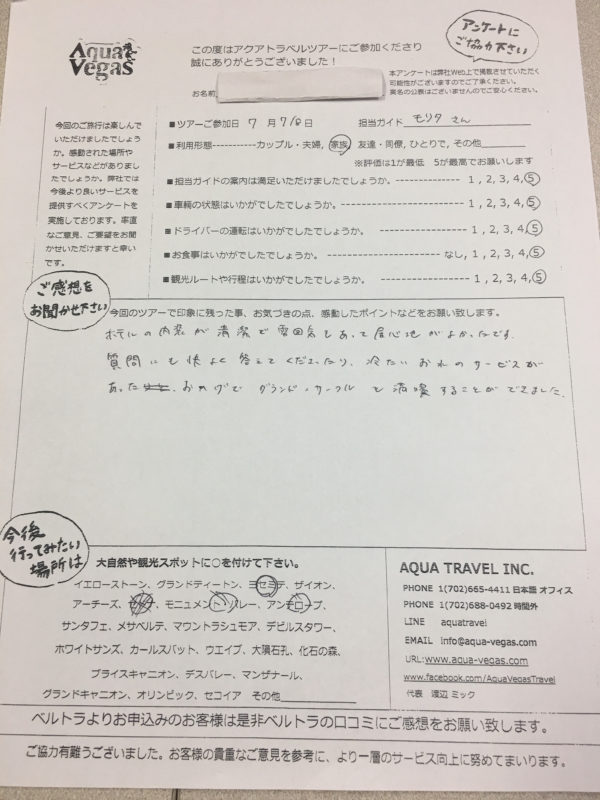 Aqua
Vegas
この度はアクアトラベルツアーにご参加くださり
誠にありがとうございました！
アンケートに
ご協力下さい
本アンケートは弊社Web上で掲載させていただく
可能性がございますのでご了承ください。
実名の公表はございませんのでご安心ください。
お名前
今回のご旅行は楽しんで
いただけましたでしょう
か。感動された場所や
サービスなどがありまし
たでしょうか。弊社では
今後より良いサービスを
提供すべくアンケートを
実施しております。率直
なご意見、ご要望をお聞
かせいただけますと幸い
です。
■ツアーご参加日 7月7/8日 担当ガイド モリタ さん
■利用形態-----------カップル・夫婦, 家族, 友達・同僚, ひとりで, その他
※評価は1が最低 5が最高でお願いします
■担当ガイドの案内は満足いただけましたでしょうか。 ---------------- 1 , 2, 3, 4, 5
■車輌の状態はいかがでしたでしょうか。 ---------------- 1 , 2, 3, 4, 5
■ドライバーの運転はいかがでしたでしょうか。 ---------------- 1 , 2, 3, 4, 5
■お食事はいかがでしたでしょうか。 ---------------- なし, 2, 3, 4, 5
■観光ルートや行程はいかがでしたでしょうか。 ---------------- 1 , 2, 3, 4, 5
ご感想を
お聞かせ下さい
今回のツアーで印象に残った事、お気づきの点、感動したポイントなどをお願い致します。
ホテルの内装が清潔で雰囲気もあって居心地がよかったです.
質問にも快よく答えてくださったり、冷たいおみずのサービスが
あった おかげで グランド・サークル を 満喫することができました.
今後
行ってみたい
場所は
大自然や観光スポットに○を付けて下さい。
イエローストーン、グランドティートン、ヨセミテ、ザイオン、
アーチーズ、セドナ、モニュメントバレー、アンテロープ、
サンタフェ、メサベルテ、マウントラシュモア、デビルスタワー、
ホワイトサンズ、カールスバット、ウエイブ、大隕石孔、化石の森、
ブライスキャニオン、デスバレー、マンザナール、
グランドキャニオン、オリンピック、セコイア その他
AQUA TRAVEL INC.
PHONE 1(702)665-4411 日本語 オフィス
PHONE 1(702)688-0492 時間外
LINE aquatravel
EMAIL info@aqua-vegas.com
URL:www.aqua-vegas.com
www.facebook.com/AquaVegasTravel
代表 渡辺 ミック
ベルトラよりお申込みのお客様は是非ベルトラの口コミにご感想をお願い致します。
ご協力有難うございました。お客様の貴重なご意見を参考に、より一層のサービス向上に努めてまいります。